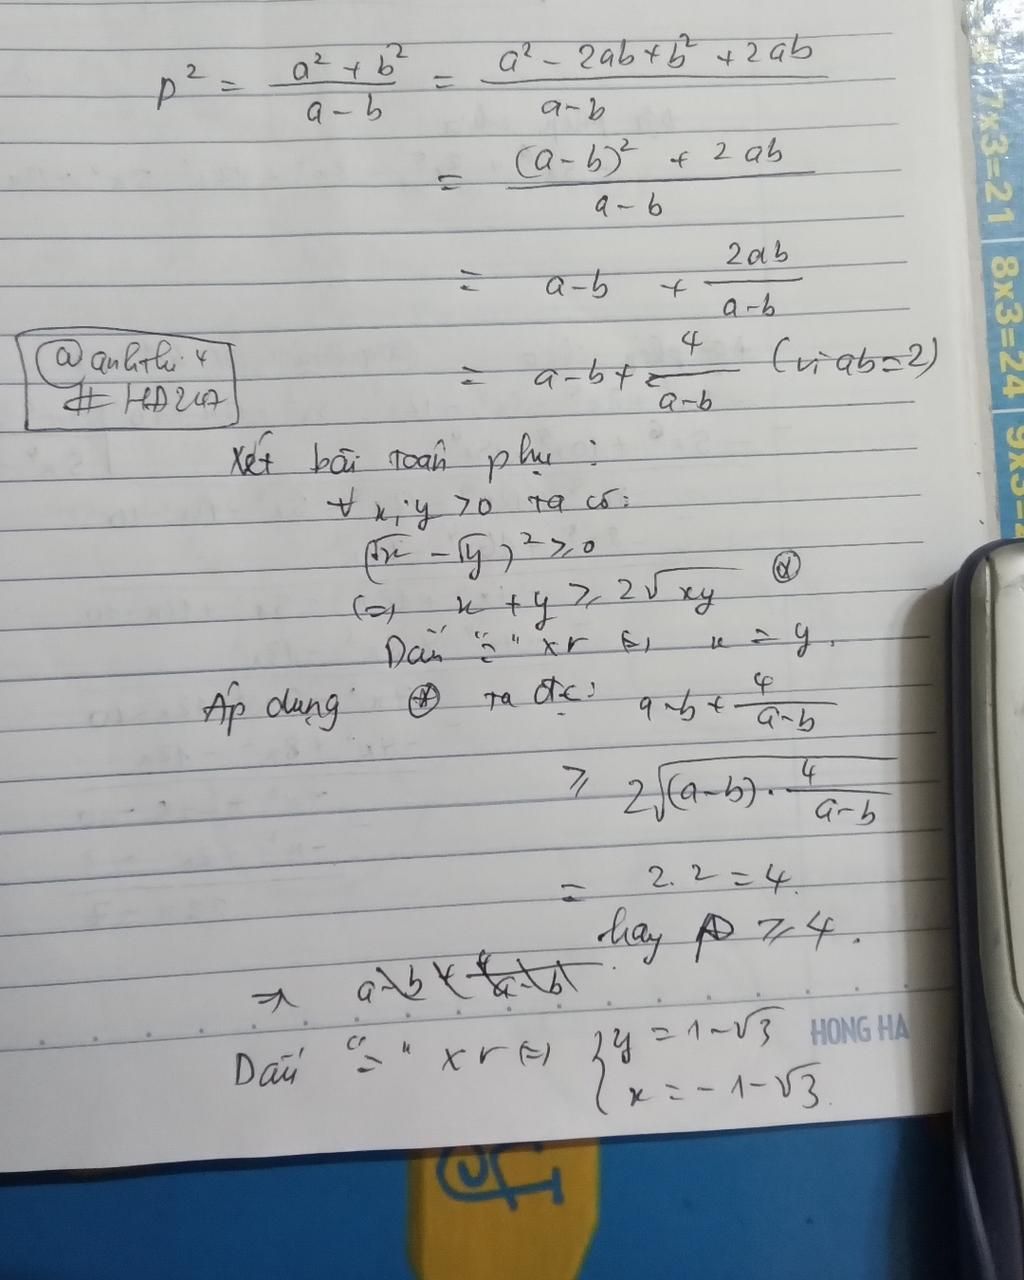 p² = (a² + b²)/(a - b) = (a² - 2ab + b² + 2ab)/(a-b)
= ((a-b)² + 2ab)/(a-b)
= a-b + 2ab/(a-b)
= a-b + 4/(a-b) (vì ab=2)
@anhthi.4
# HD247
Xét bài toán phụ :
∀ x;y >0 ta có:
(√x - √y)² ≥ 0
(=) x + y ≥ 2√xy (*)
Dấu "=" xr (=) x = y.
Áp dụng (*) ta đc: a-b + 4/(a-b)
≥ 2√((a-b) . 4/(a-b))
= 2.2 = 4.
hay P ≥ 4.
=> a-b + 4/(a-b)
Dấu "=" xr (=) { y = 1-√3
x = -1-√3.
HONG HA
7x3=21
8x3=24
9x3=2